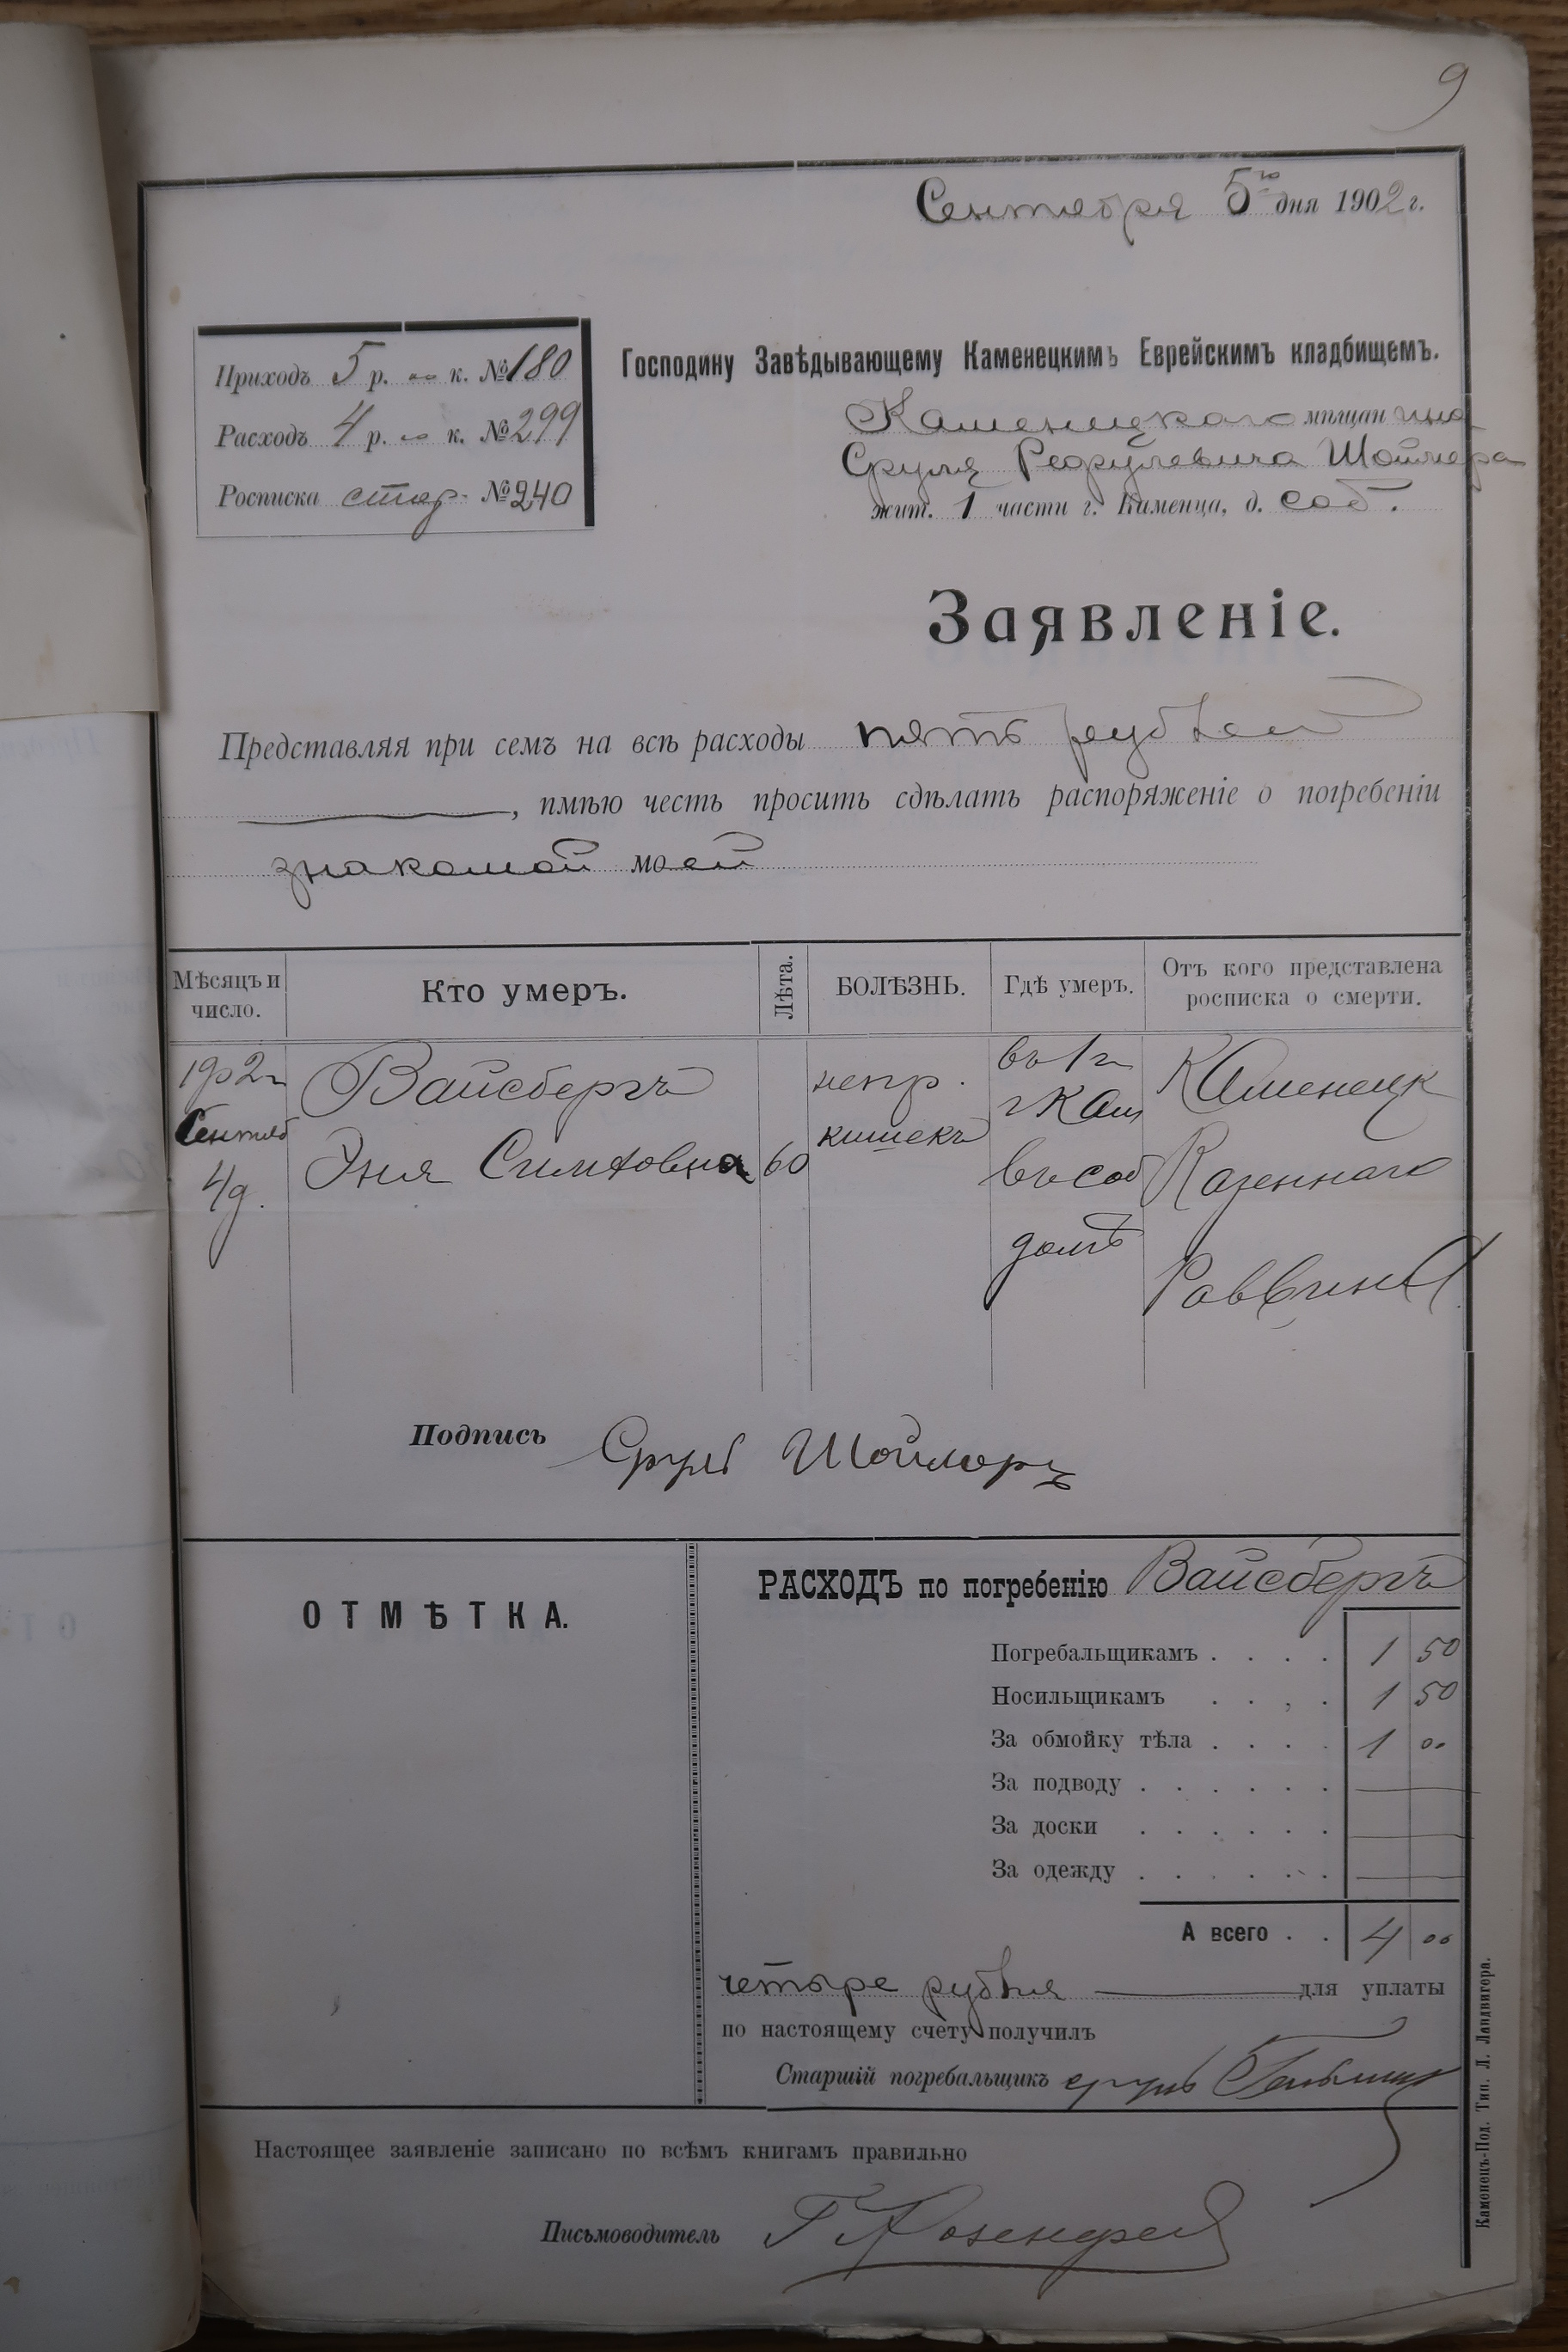 9
Сентября 5го дня 1902 г.
Приходъ 5 р. „ к. № 180
Расходъ 4 р. „ к. № 299
Росписка стар. № 240
Господину Завѣдывающему Каменецкимъ Еврейскимъ кладбищемъ.
Каменецкаго мѣщанина
Сруля Шойлера
жит. 1 части г. Каменца, д. соб.
Заявленіе.
Представляя при семъ на всѣ расходы пять рублей
, имѣю честь просить сдѣлать распоряженіе о погребеніи
знакомой моей
Мѣсяцъ и число.
Кто умеръ.
Лѣта.
БОЛѢЗНЬ.
Гдѣ умеръ.
Отъ кого представлена росписка о смерти.
1902 г
Сентяб
4 д.
Вайсбергъ
Эня Симховна
60
непр.
кишекъ
въ 1 ч
г Кам
въ соб
домѣ
Каменецк
Казеннаго
Раввина
Подпись Сруль Шойлеръ
ОТМѢТКА.
РАСХОДЪ по погребенію Вайсбергъ
Погребальщикамъ . . . . 1 50
Носильщикамъ . . , . 1 50
За обмойку тѣла . . . . 1 00
За подводу . . . . . . —
За доски . . . . . . —
За одежду . . . . . . —
А всего . . 4 00
четыре рубля для уплаты
по настоящему счету получилъ
Старшій погребальщикъ Сруль
Настоящее заявленіе записано по всѣмъ книгамъ правильно
Письмоводитель Г Розенфельд
Каменецъ-Под. Тип. Л. Ландвигера.